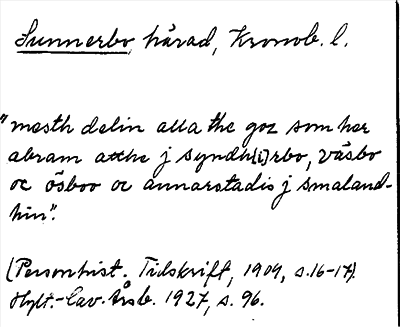 Sunnerbo härad, Kronob. l.
"mesth delin alla the goz som her
abram atthe j syndh[e]rbo, väsbo
oc ösboo oc annarstadis j smaland-
hin".
(Personhist. Tidskrift, 1909, s. 16-17).
Hylt.-Cav. Årsb. 1927, s. 96.